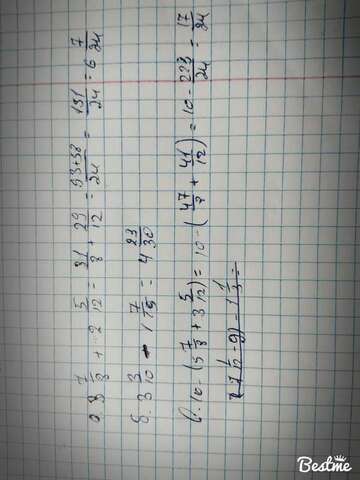 a. 3 7/8 + 2 5/12 = 31/8 + 29/12 = 93+58/24 = 151/24 = 6 7/24
б. 3 3/10 - 1 7/15 = 4 23/30
в. 10 - (5 7/8 + 3 5/12) = 10 - (47/8 + 41/12) = 10 - 223/24 = 17/24
Bestme